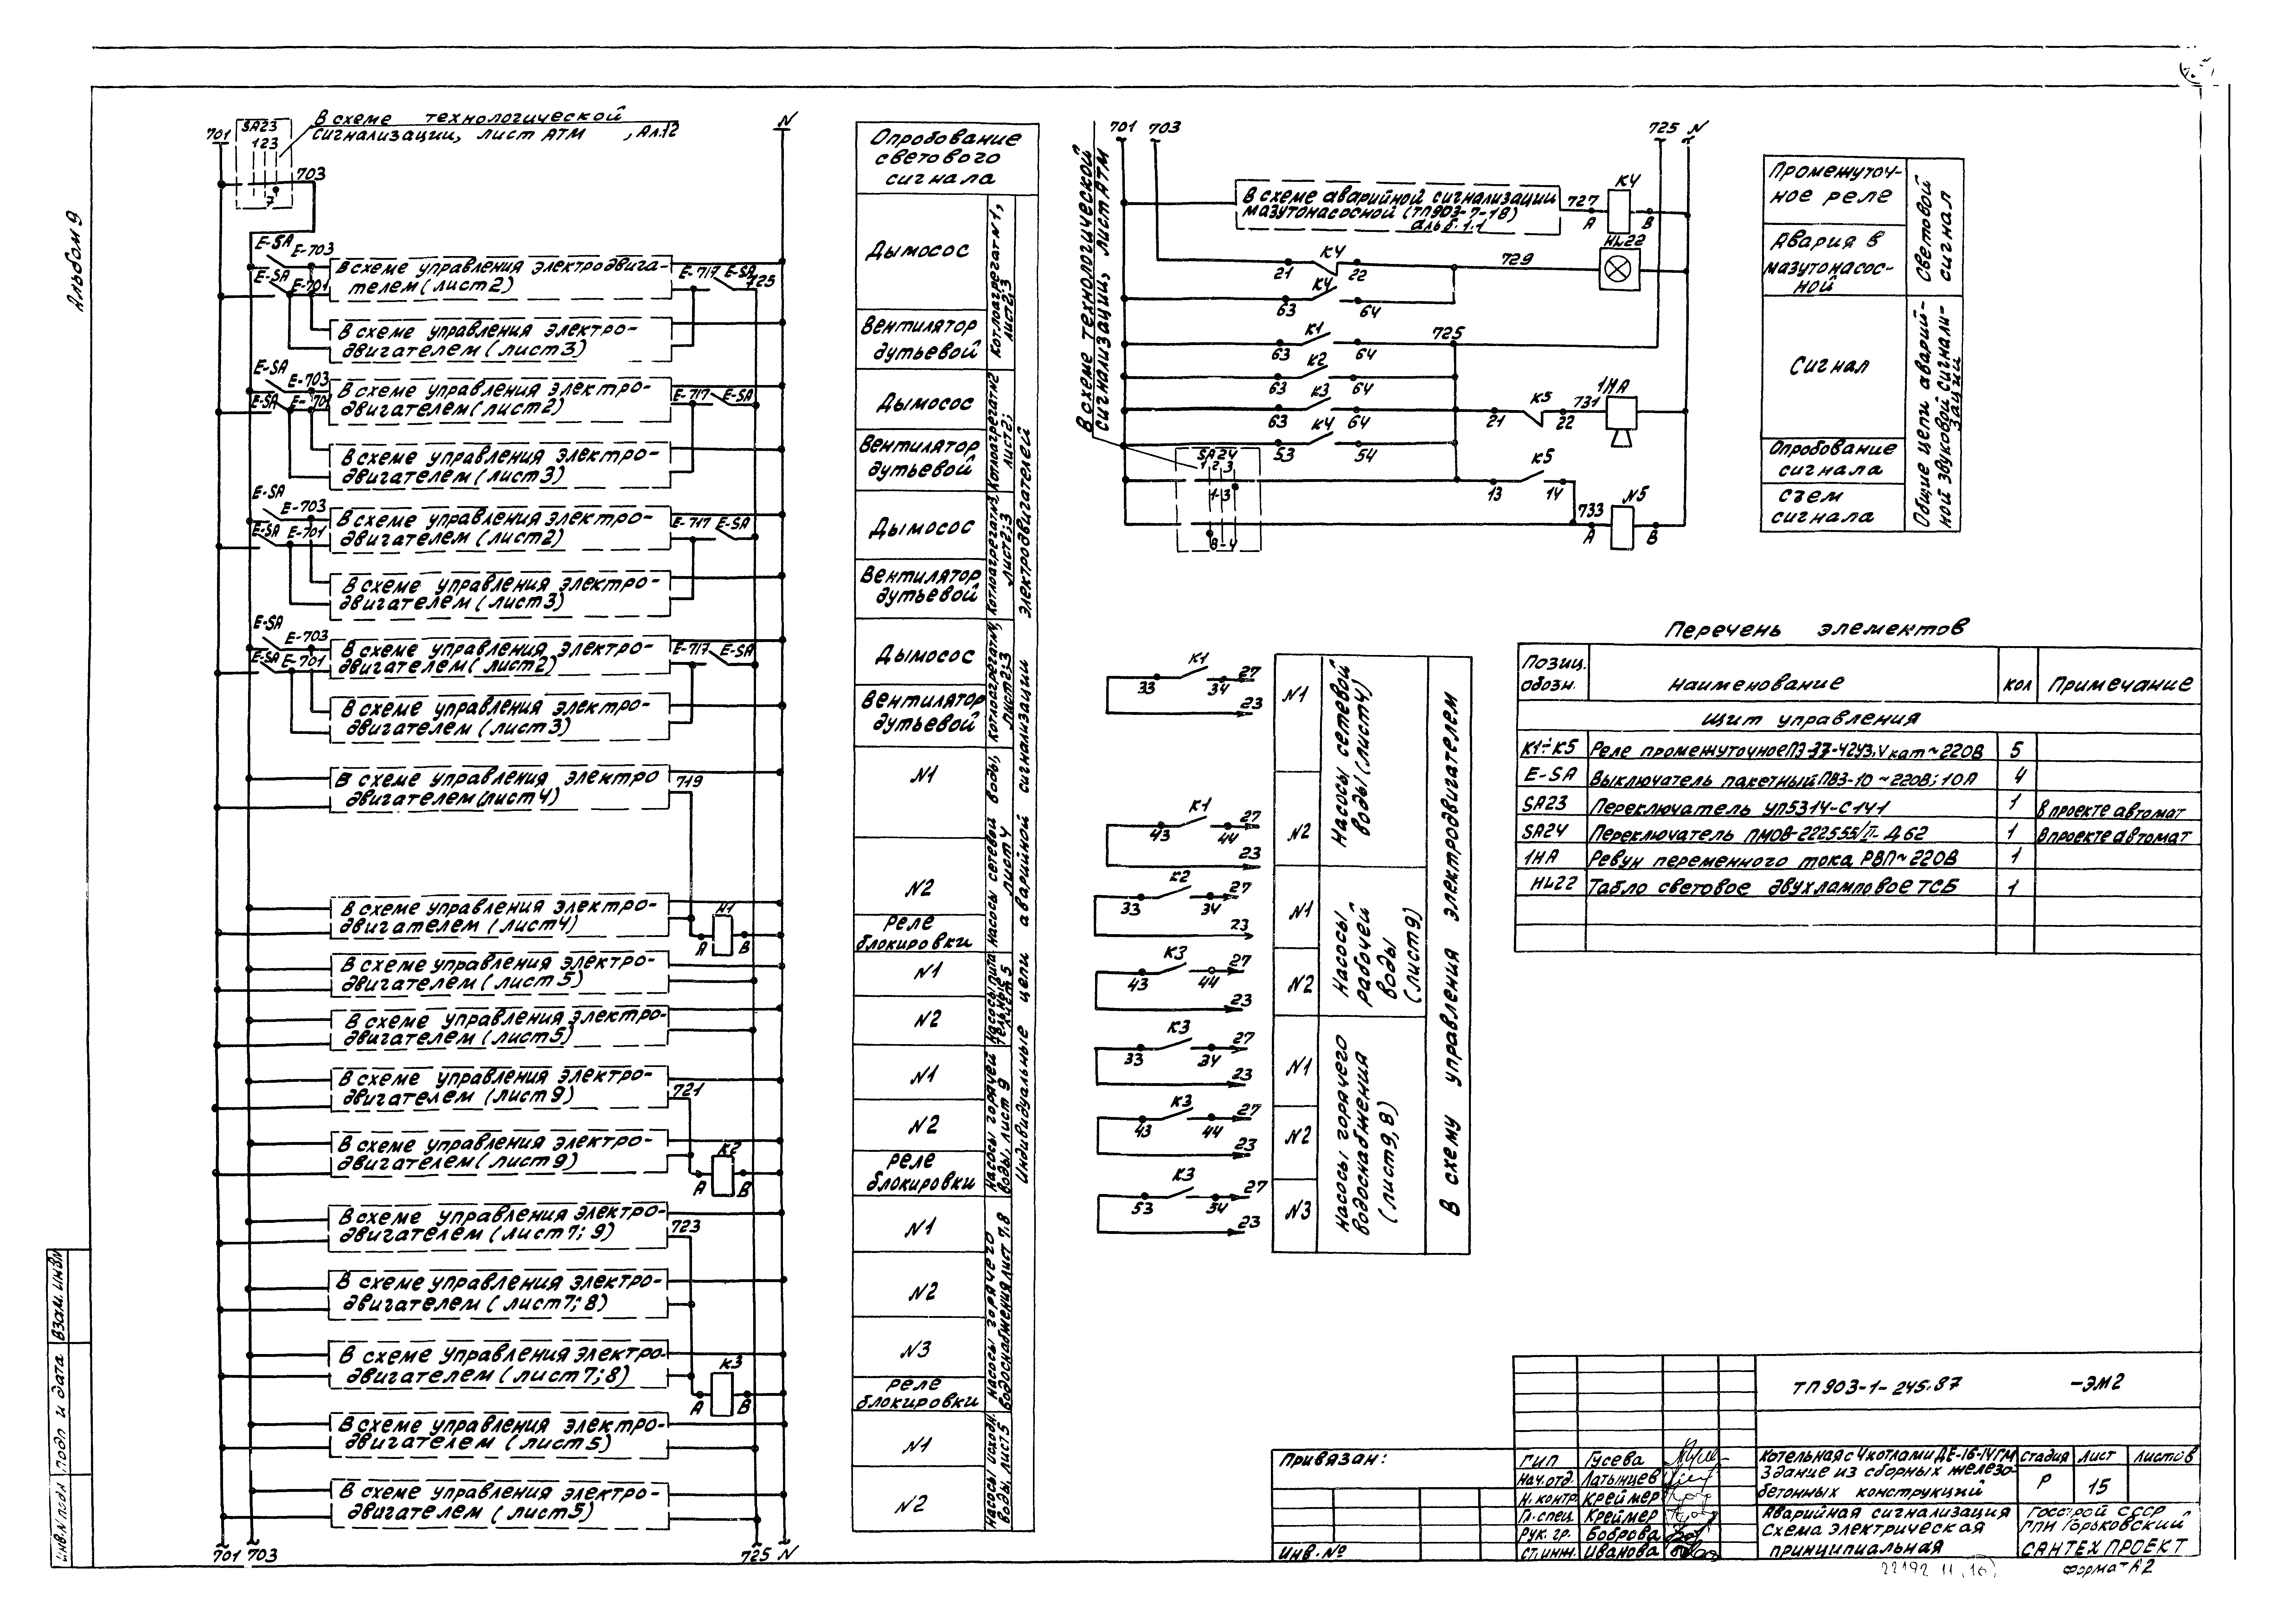 Альбом 9
701
SA23
1 2 3
7
703
В схеме технологической
сигнализации, лист АТМ , Ал.12
N
E-SA
E-703
E-SA
E-701
В схеме управления электродвига-
телем (лист 2)
E-717 E-SA
725
В схеме управления электро-
двигателем (лист 3)
E-SA
E-703
E-SA
E-701
В схеме управления электро-
двигателем (лист 2)
E-717 E-SA
В схеме управления электро-
двигателем (лист 3)
E-SA
E-703
E-SA
E-701
В схеме управления электро-
двигателем (лист 2)
E-717 E-SA
В схеме управления электро-
двигателем (лист 3)
E-SA
E-703
E-SA
E-701
В схеме управления электро-
двигателем (лист 2)
E-717 E-SA
В схеме управления электро-
двигателем (лист 3)
В схеме управления электро
двигателем (лист 4)
719
В схеме управления электро-
двигателем (лист 4)
К1
А В
В схеме управления электро-
двигателем (лист 5)
В схеме управления электро-
двигателем (лист 5)
В схеме управления электро-
двигателем (лист 9)
721
В схеме управления электро-
двигателем (лист 9)
К2
А В
В схеме управления электро-
двигателем (лист 7; 9)
723
В схеме управления электро-
двигателем (лист 7; 8)
В схеме управления электро-
двигателем (лист 7; 8)
К3
А В
В схеме управления электро-
двигателем (лист 5)
В схеме управления электро-
двигателем (лист 5)
701 703
725 N
Опробование
светового
сигнала
Дымосос
Вентилятор
дутьевой
Котлоагрегат N1,
лист 2;3
Дымосос
Вентилятор
дутьевой
Котлоагрегат N2
лист 2;3
Дымосос
Вентилятор
дутьевой
Котлоагрегат N3
лист 2;3
Дымосос
Вентилятор
дутьевой
Котлоагрегат N4,
лист 2;3
N1
N2
реле
блокировки
Насосы сетевой воды,
лист 4
N1
N2
Насосы пита
тельные
лист 5
N1
N2
реле
блокировки
Насосы горячей
воды лист 9
N1
N2
N3
реле
блокировки
Насосы горячего
водоснабжения лист 7,8
N1
N2
Насосы исходн.
воды, лист 5
Индивидуальные цепи аварийной сигнализации электродвигателей
В схеме технологической
сигнализации, лист АТМ
701 703
725 N
В схеме аварийной сигнализации
мазутонасосной (ТП903-7-18)
альб. 1.1
727
К4
А В
К4
21 22
729
HL22
К4
63 64
К1
63 64
725
К2
63 64
К3
63 64
К5
21 22
731
1НА
К4
53 54
SA24
1 2 3
1-3
8-4
К5
13 14
733
N5
А В
Промежуточ-
ное реле
Авария в
мазутонасос-
ной
Световой
сигнал
Сигнал
Опробование
сигнала
Съем
сигнала
Общие цепи аварий-
ной звуковой сигнали-
зации
К1
33 34
27
23
К1
43 44
27
23
К2
33 34
27
23
К3
43 44
27
23
К3
33 34
27
23
К3
43 44
27
23
К3
53 54
27
23
N1
N2
Насосы сетевой
воды (лист 4)
N1
N2
Насосы
рабочей
воды
(лист 9)
N1
N2
N3
Насосы горячего
водоснабжения
(лист 9, 8)
В схему управления электродвигателем
Перечень элементов
Позиц.
обозн.
Наименование
кол
Примечание
Щит управления
К1÷К5 Реле промежуточное ПЭ-37-42У3, V кат ~ 220В 5
E-SA Выключатель пакетный ПВ3-10 ~ 220В; 10А 4
SA23 Переключатель УП5314-С141 1 в проекте автомат
SA24 Переключатель ПМОВ-222555/II-Д62 1 в проекте автомат
1НА Ревун переменного тока РВП ~ 220В 1
HL22 Табло световое двухламповое ТСБ 1
ТП903-1-245.87 -ЭМ2
Привязан:
Инв. №
ГИП Гусева
Нач. отд. Латынцев
Н. контр. Креймер
Гл. спец. Креймер
Рук. гр. Боброва
Ст. инж. Иванова
Котельная с 4 котлами ДЕ-16-14ГМ
Здание из сборных железо-
бетонных конструкций
стадия лист листов
Р 15
Аварийная сигнализация
Схема электрическая
принципиальная
Госстрой СССР
ГПИ Горьковский
САНТЕХПРОЕКТ
22192 11 (16)
формат А2
Взам. инв. N
подп и дата
инв. N подл